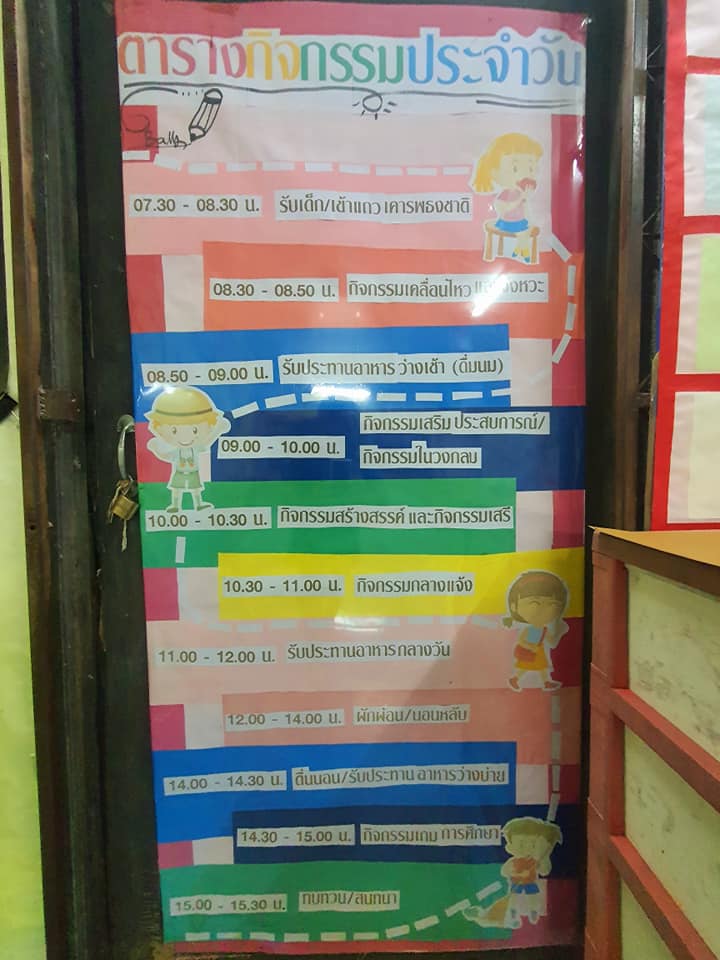 ตารางกิจกรรมประจำวัน
07.30 - 08.30 น. รับเด็ก/เข้าแถว เคารพธงชาติ
08.30 - 08.50 น. กิจกรรมเคลื่อนไหว
08.50 - 09.00 น. รับประทานอาหาร ว่างเช้า (ดื่มนม)
09.00 - 10.00 น. กิจกรรมเสริม ประสบการณ์/
กิจกรรมในวงกลม
10.00 - 10.30 น. กิจกรรมสร้างสรรค์ และกิจกรรมเสรี
10.30 - 11.00 น. กิจกรรมกลางแจ้ง
11.00 - 12.00 น. รับประทานอาหาร กลางวัน
12.00 - 14.00 น. ผักผ่อน/นอนหลับ
14.00 - 14.30 น. ตื่นนอน/รับประทาน อาหารว่างบ่าย
14.30 - 15.00 น. กิจกรรมเกม การศึกษา
15.00 - 15.30 น. ทบทวน/สนทนา